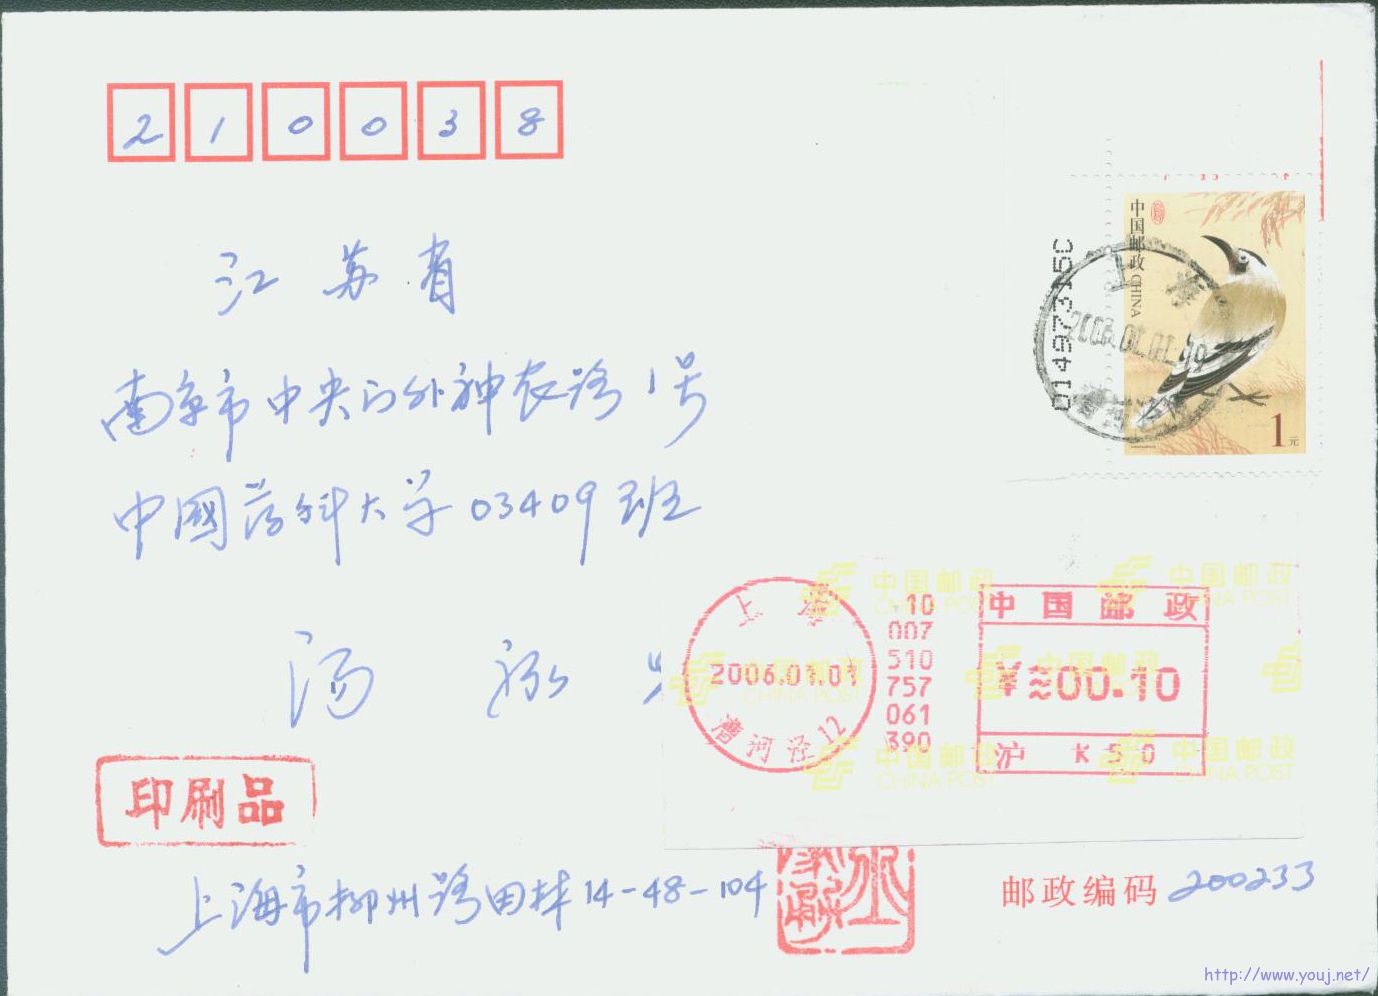 210038
江苏省
南京市中央门外神农路1号
中國药科大学03409班
汤
中国邮政 CHINA
1元
01497315C
上海
2006.01.01.09
上海
2006.01.01
漕河泾12
10
007
510
757
061
390
中国邮政
¥≈00.10
沪 K50
中国邮政
CHINA POST
印刷品
上海市柳州路田林14-48-104
邮政编码 200233
http://www.youj.net/